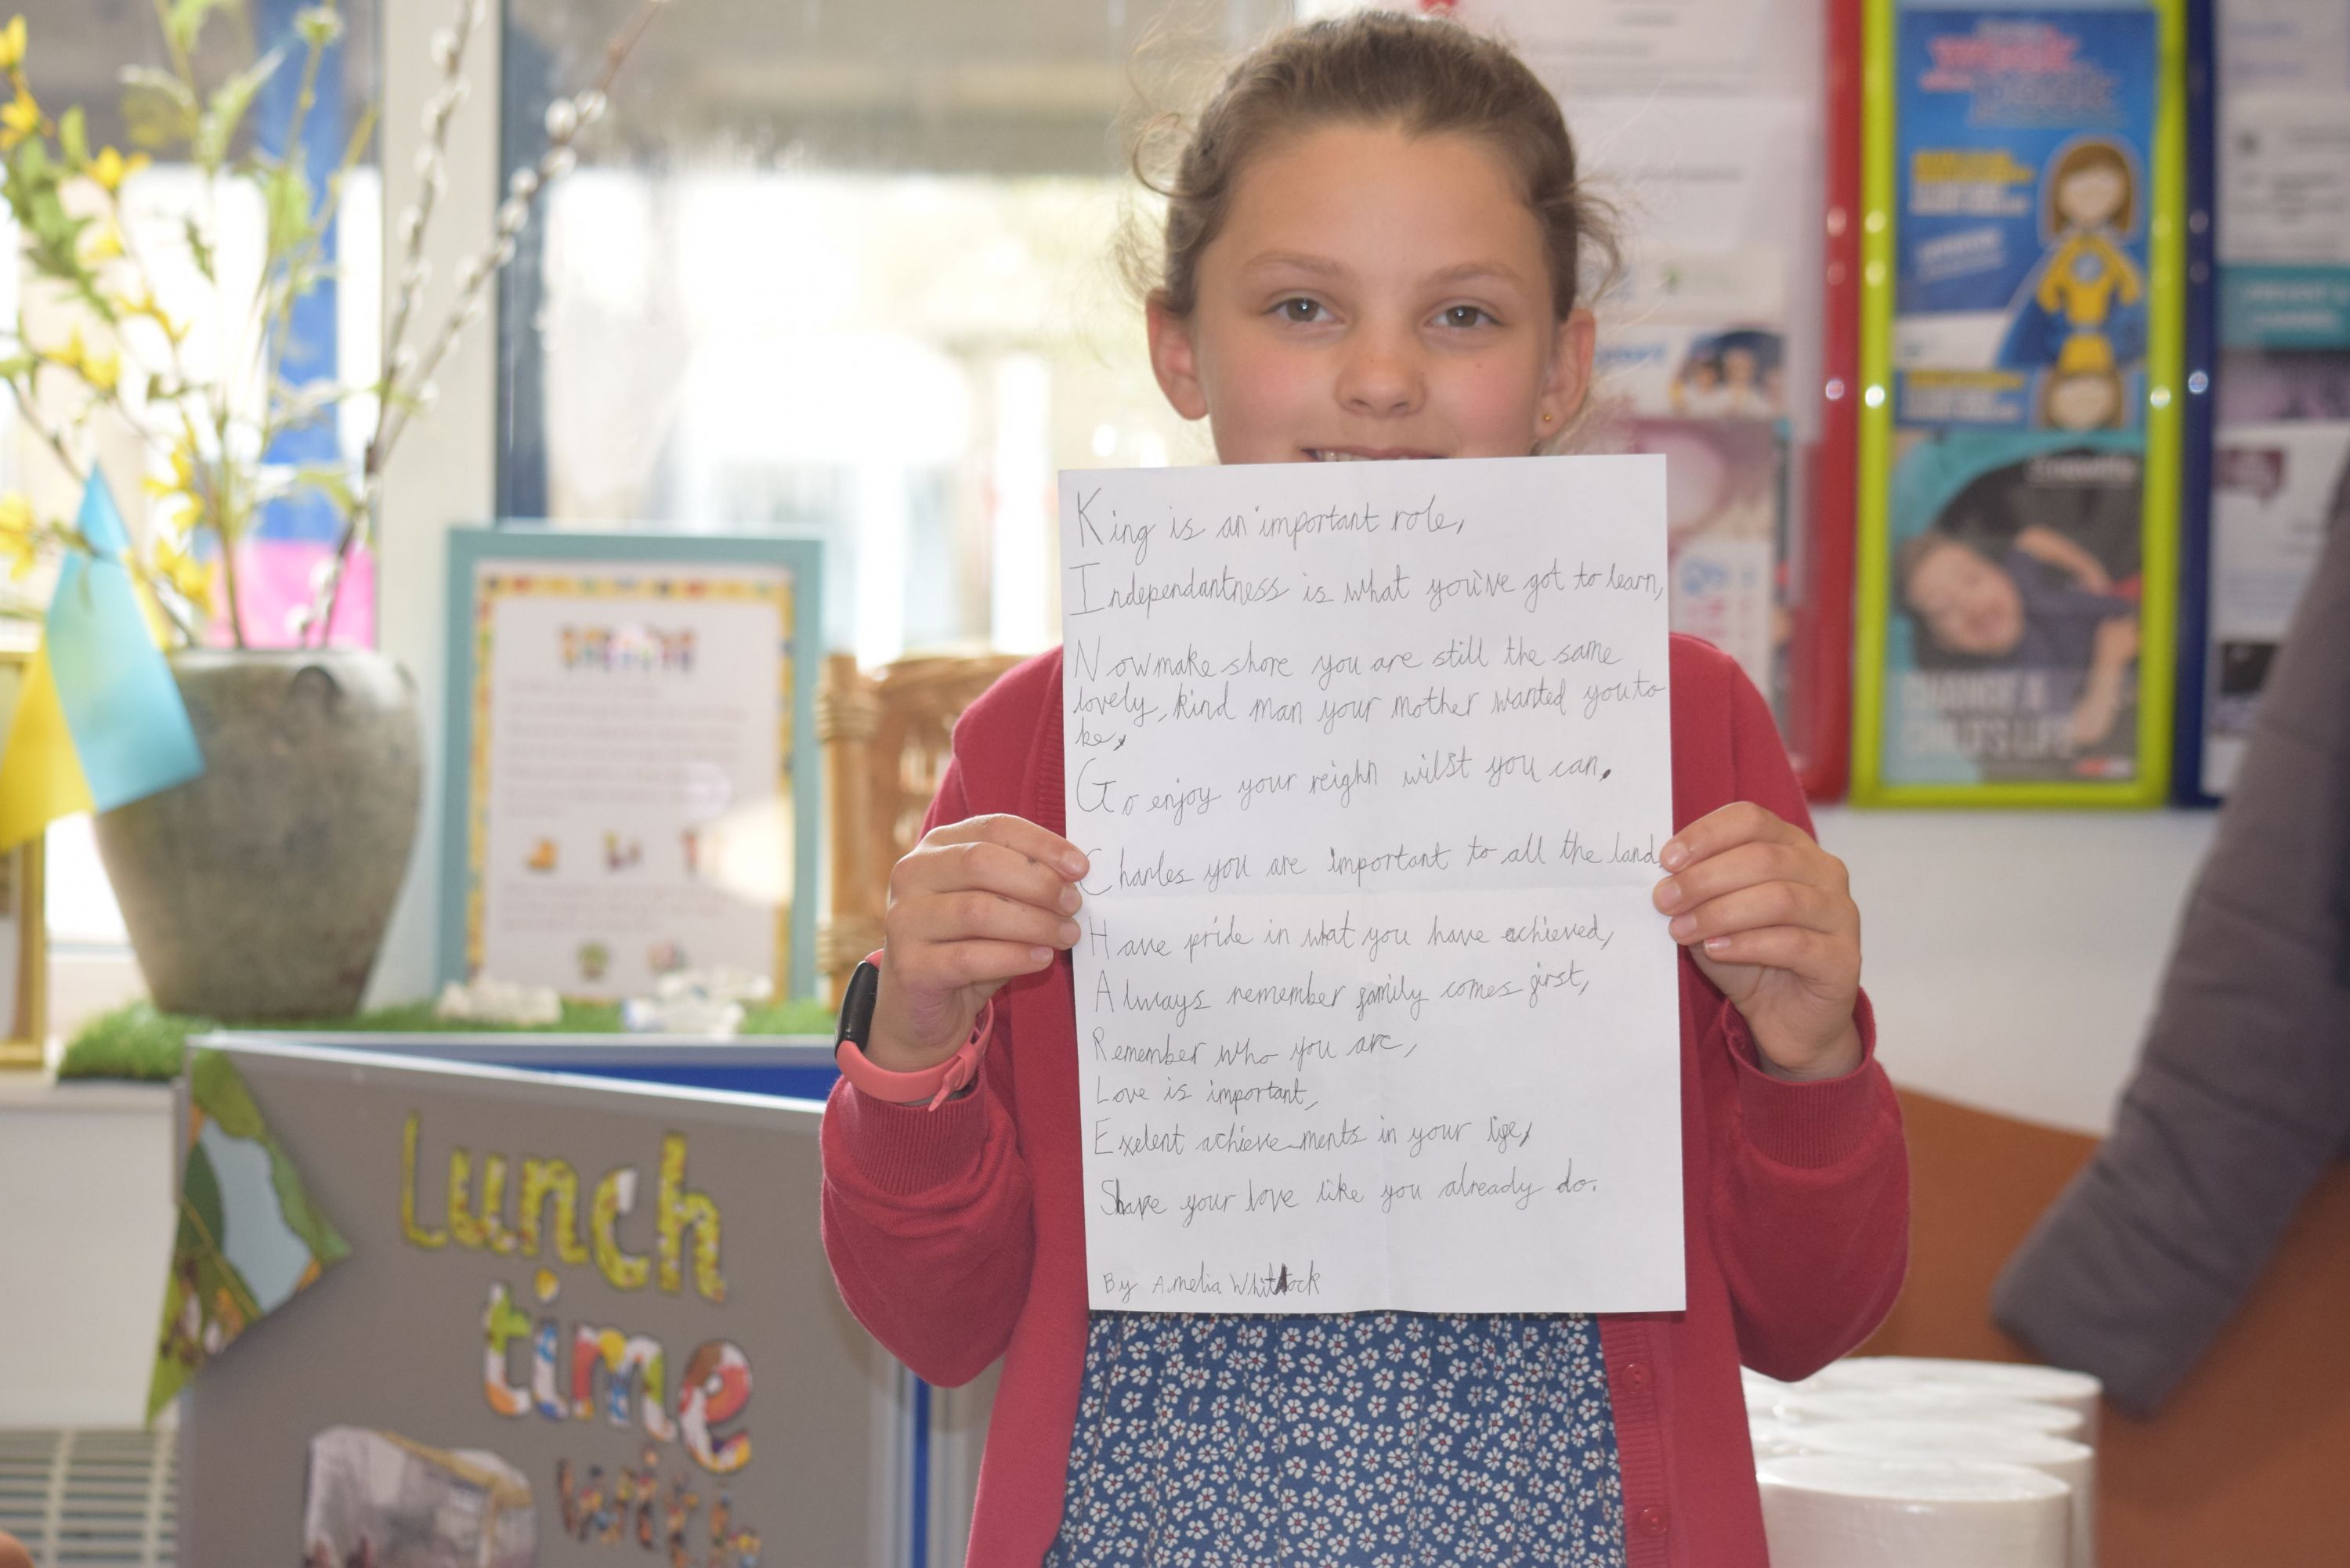 King is an important role,
Independantness is what you've got to learn,
Now make shore you are still the same
lovely, kind man your mother wanted you to
be,
Go enjoy your reighn wilst you can,
Charles you are important to all the land,
Have pride in what you have achieved,
Always remember family comes first,
Remember who you are,
Love is important,
Exelent achieve-ments in your life,
Share your love like you already do.
By Amelia Whittock
Lunch
time
with
CHANGE A
CHILD'S LIFE